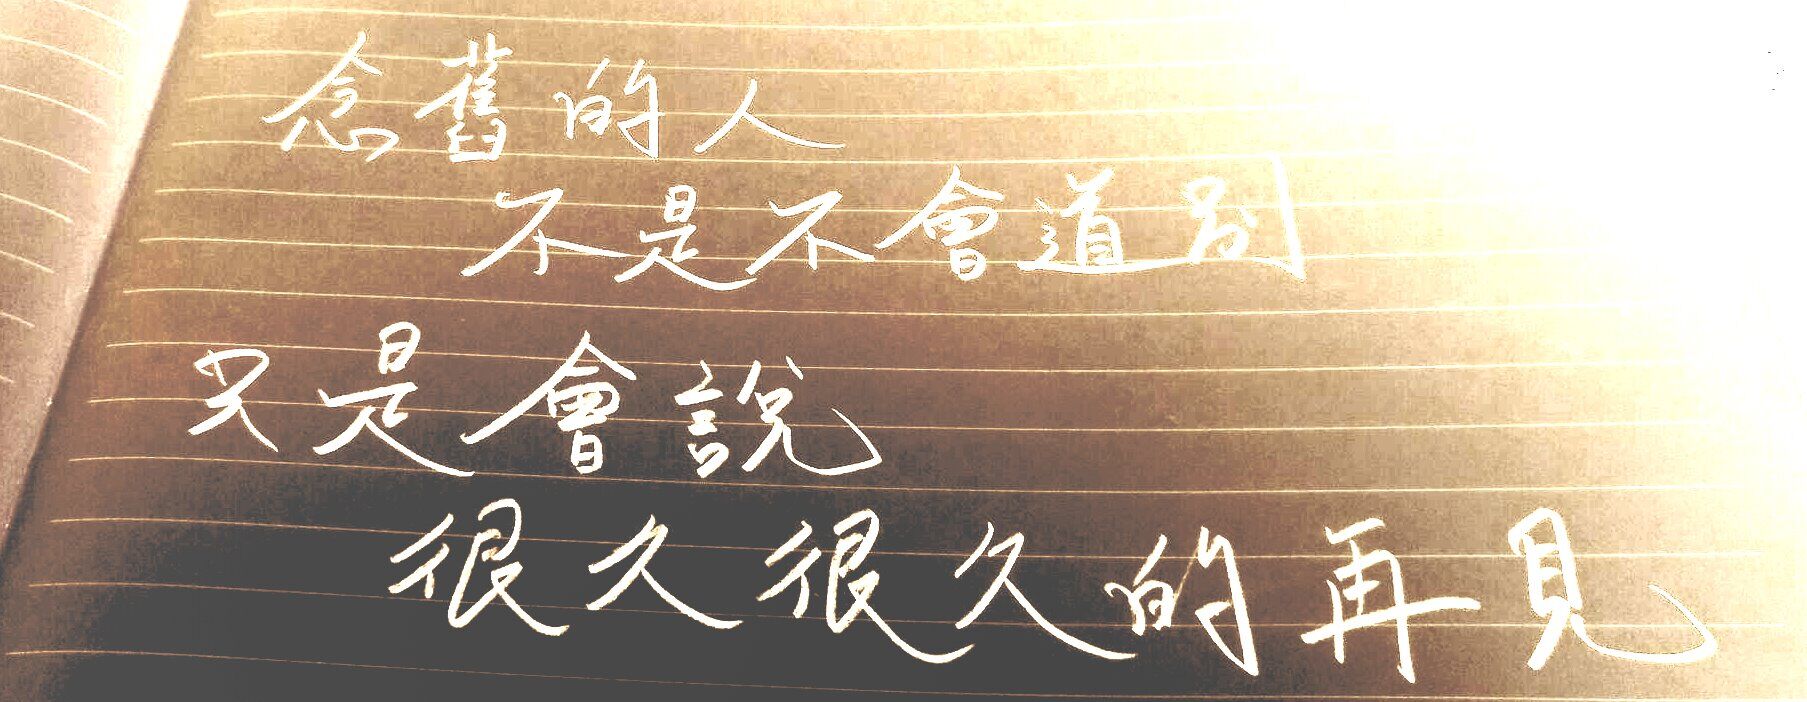 念舊的人
不是不會道別
只是會說
很久很久的再見